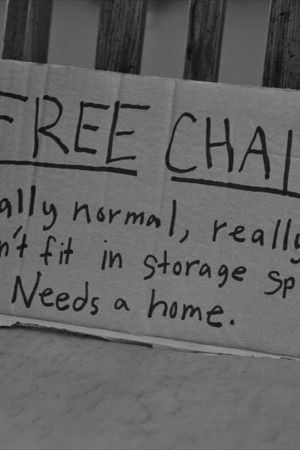 FREE CHAI
ally normal, really
n't fit in storage sp
Needs a home.